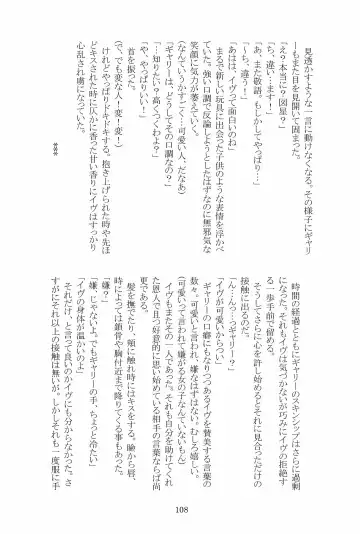 見透かすような一言に動けなくなる。その様子にギャリ
ーもまた目を見開いて固まった。
「え？本当に？図星？」
「ち、違い…ます！」
「あ、また敬語。もしかしてやっぱり…」
「～ち、違う！」
「あはは、イヴって面白いのね」
まるで新しい玩具に出会った子供のような表情を浮かべ
ていた。強い口調で反抗しようとしたはずなのに無邪気な
笑顔に気力が萎えていく。
(なんていうかすごく…可愛い人、だなあ)
「ギャリーは、どうしてその口調なの？」
「…知りたい？高くつくわよ？」
「や、やっぱりいい！」
首を振った。
(で、でも変な人！変！変！)
けれどやっぱりドキドキする。抱き上げられた時や先ほ
どキスされた時に仄かに香った甘い香りにイヴはすっかり
心乱され虜になっていた。
***
時間の経過とともにギャリーのスキンシップはさらに過剰
になった。それもイヴは気づかないが巧みにイヴの拒絶す
る一歩手前で留める。
そうしてさらに心を許し始めるとそれに見合っただけの
ことに出るのだ。
「可愛いからつい」
「…ん、んっ…っギャリー？」
ギャリーの口癖にもなりつつあるイヴを賛美する言葉の
数々。可愛いと言われ、嫌なはずはない。むしろ嬉しい。
(可愛いって言われて嫌がる女の子なんていないもん)
イヴもまたその一人であった。それも自分を助けてくれ
た恩人で且つ好意的に思い始めている相手の言葉ならば尚
更である。
髪を撫でたり、頬に触れ時にはキスをする。瞼から唇、
時によっては鎖骨や胸付近まで降りてくる事もあった。
「嫌？」
「嫌、じゃないよ。でもギャリーの手、ちょっと冷たい」
「イヴの身体が温かいのよ」
それだけ、と言って良いのかイヴにも分からなかった。さ
すがにそれ以上の接触は無いが、しかしそれも一度服に手
108